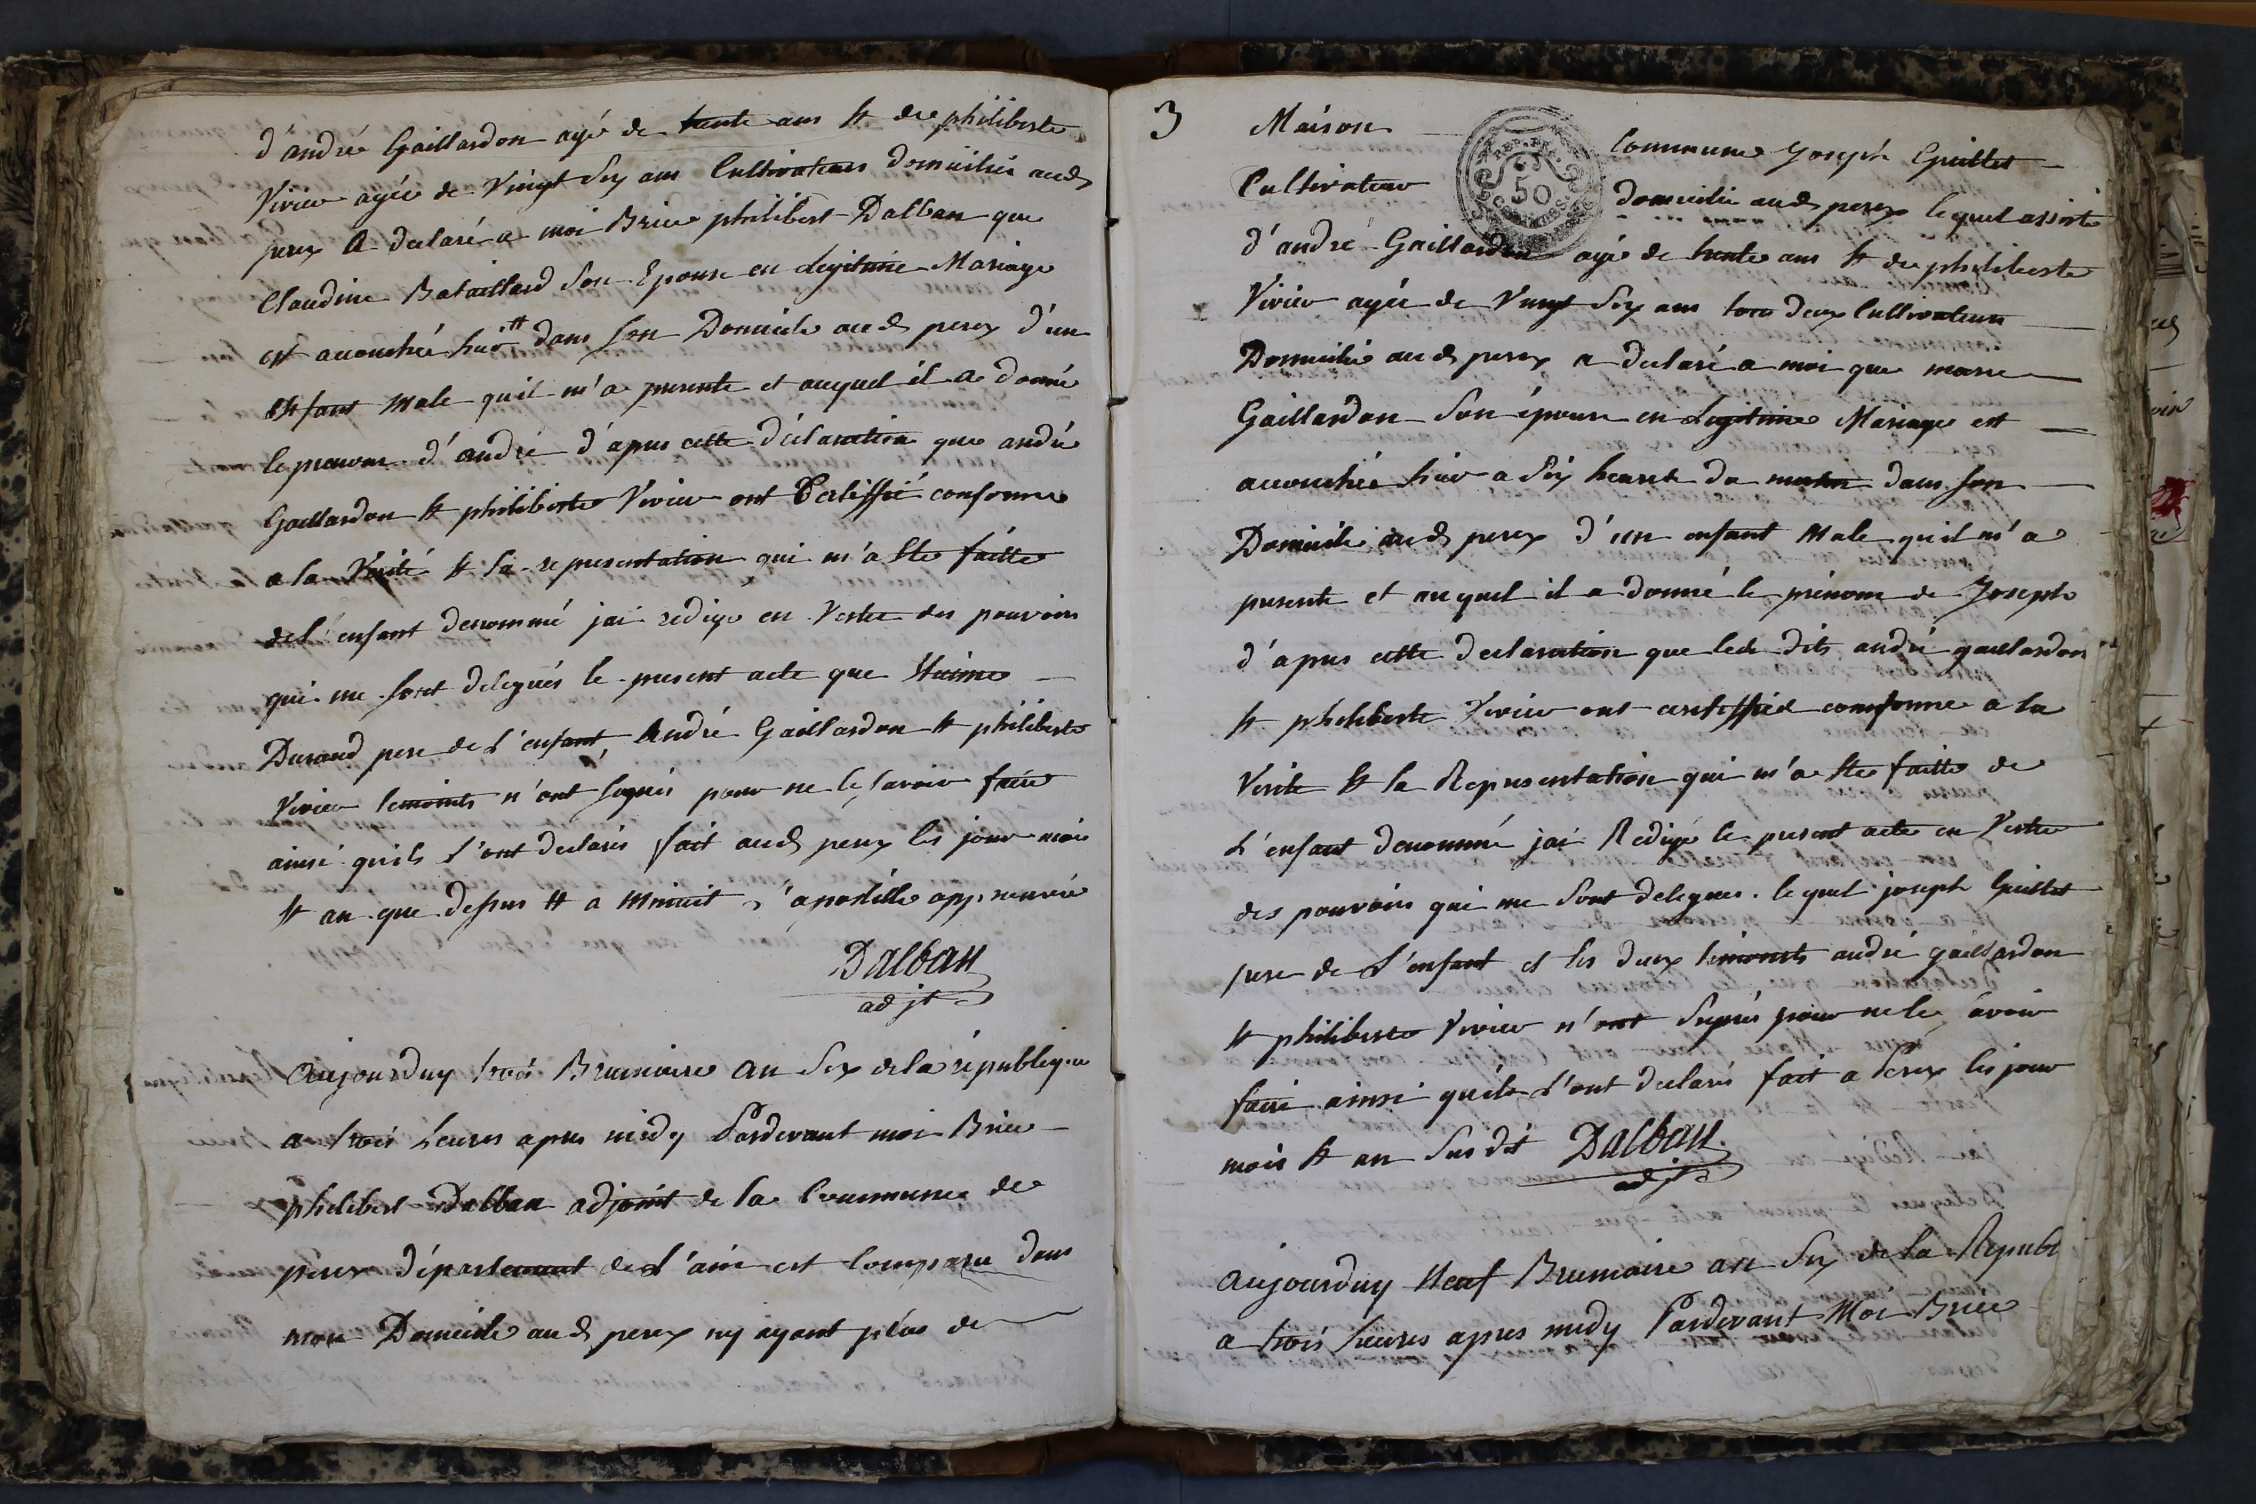 d'andré Gaillardon agé de trente ans et de philiberte
Vivier agée de Vingt Six ans Cultivateurs domicilié aud
perex A declaré a moi Brice philibert Dalban que
Claudine Bataillard Son Epouse en Legitime Mariage
est acouchée hier # dans son Domicile aud perex d'un
enfant male qu'il m'a presenté et auquel il a donné
le prenom d'andré d'apres cette déclaration que andré
Gaillardon et philiberte Vivier ont Certiffié conforme
a la Verité et la representation qui m'a Ete faitte
de L'enfant denommé jai redigé en Vertu des pouvoirs
qui me sont delegués le present acte que
Durand pere de L'enfant, André Gaillardon et philiberte
Vivier temoints n'ont signés pour ne le savoir faire
ainsi qu'ils L'ont declarés fait aud perex les jour mois
et an que dessus # a Minuit l'apostille approuvée
Dalban
adjt
Aujourduy trois Brumaire an Six de la république
a trois heures apres midy Pardevant moi Brice
philibert Dalban adjoint de la Commune de
perex département de L'ain est Comparu dans
mon Domicile aud perex ny ayant plus de
3 Maison Commune Joseph Guillet
Cultivateur domicilié aud perex lequel assisté
REP. FRA.
50
d'andré Gaillardon agé de trente ans et de philiberte
Vivier agée de Vingt Six ans tous deux Cultivateurs
Domicilié aud perex a declaré a moi que marie
Gaillardon Son épouse en Legitime Mariage est
acouchée hier a Six heures du matin dans son
Domicile aud perex d'un enfant Male qu'il m'a
presenté et auquel il a donné le prénom de Joseph
d'apres cette declaration que led dits andré gaillardon
et philiberte Vivier ont certiffiée comforme a la
Verité et la Representation qui m'a Ete faitte de
L'enfant denommé jai Redigé le present acte en Vertu
des pouvoirs qui me Sont delegues. lequel joseph Guillet
pere de L'enfant et les deux temoints andré gaillardon
et philiberte Vivier n'ont Signés pour ne le Savoir
faire ainsi qu'ils L'ont declarés fait a Perex les jour
mois et an Sus dit Dalban
adjt
Aujourduy Neuf Brumaire an Six de la Republ
a trois heures apres midy Pardevant Moi Brice